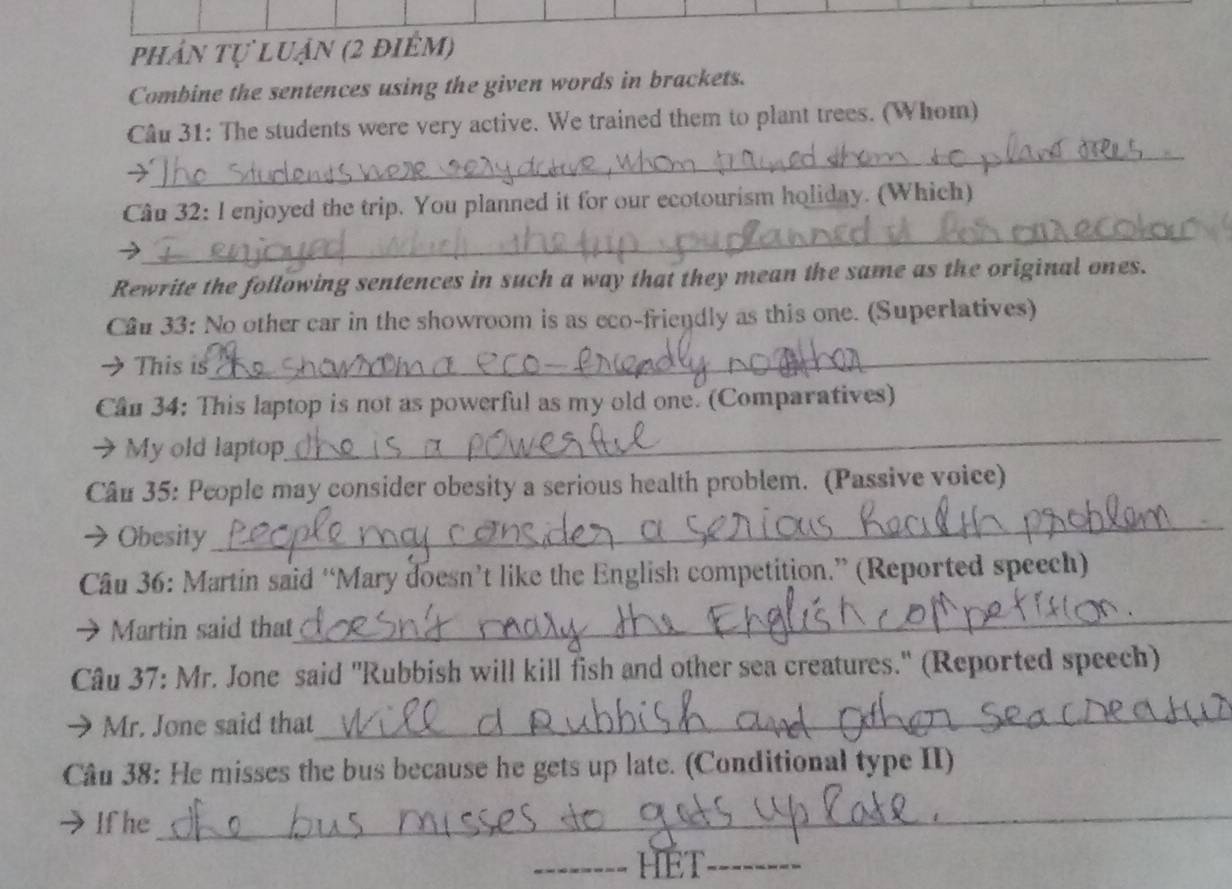 PHẦN TỰ LUẬN (2 ĐIỂM)
Combine the sentences using the given words in brackets.
Câu 31: The students were very active. We trained them to plant trees. (Whom)
→ The students were very active, whom trained them to plant trees
Câu 32: I enjoyed the trip. You planned it for our ecotourism holiday. (Which)
→ I enjoyed which the trip you planned it for our ecotou
Rewrite the following sentences in such a way that they mean the same as the original ones.
Câu 33: No other car in the showroom is as eco-friendly as this one. (Superlatives)
→ This is the showroom a eco-friendly no other
Câu 34: This laptop is not as powerful as my old one. (Comparatives)
→ My old laptop the is a powerful
Câu 35: People may consider obesity a serious health problem. (Passive voice)
→ Obesity people may consider a serious health problem
Câu 36: Martin said "Mary doesn't like the English competition." (Reported speech)
→ Martin said that doesn't maly the English competision.
Câu 37: Mr. Jone said "Rubbish will kill fish and other sea creatures." (Reported speech)
→ Mr. Jone said that will a Rubbish and other sea creatur
Câu 38: He misses the bus because he gets up late. (Conditional type II)
→ If he the bus misses to gets up late.
-------- HẾT--------